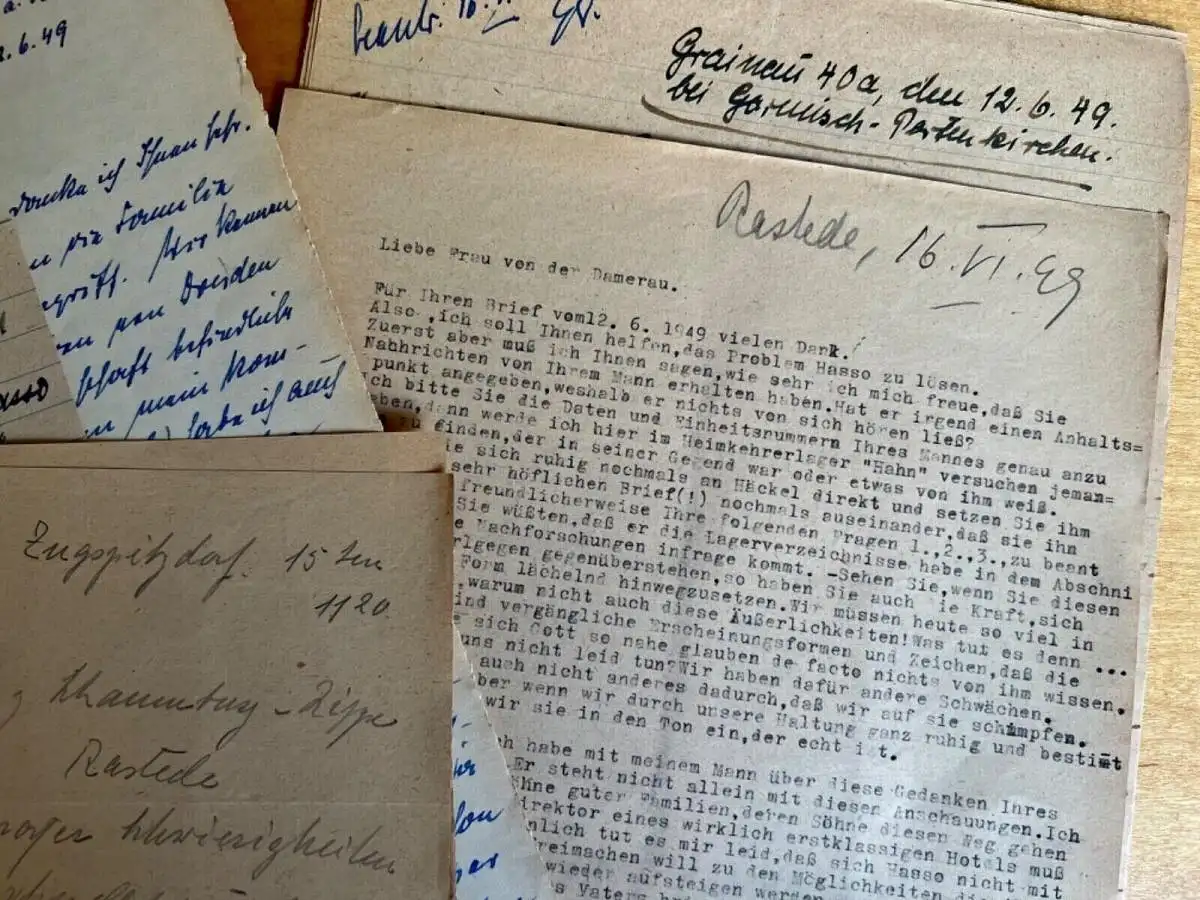 .6.49
danke ich Ihnen sehr.
die Familie
Wir kennen
von Dresden
befindliche
mein Kom-
habe ich auch
asso
Grainau 40a, den 12.6.49.
bei Garmisch-Partenkirchen.
Rastede, 16.VI.49
Liebe Frau von der Damerau.
Für Ihren Brief vom12. 6. 1949 vielen Dank.
Also ,ich soll Ihnen helfen,das Problem Hasso zu lösen.
Zuerst aber muß ich Ihnen sagen,wie sehr ich mich freue,daß Sie
Nachrichten von Ihrem Mann erhalten haben.Hat er irgend einen Anhalts=
punkt angegeben,weshalb er nichts von sich hören ließ?
Ich bitte Sie die Daten und Einheitsnummern Ihres Mannes genau anzu
eben,dann werde ich hier im Heimkehrerlager "Hahn" versuchen jeman=
zu finden,der in seiner Gegend war oder etwas von ihm weiß.
te sich ruhig nochmals an Häckel direkt und setzen Sie ihm
sehr höflichen Brief(!) nochmals auseinander,daß sie ihn
freundlicherweise Ihre folgenden Fragen 1.,2.,3.,zu beant
Sie wüßten,daß er die Lagerverzeichnisse habe in dem Abschni
e Nachforschungen infrage kommt. -Sehen Sie,wenn Sie diesen
rlgegen gegenüberstehen,so haben Sie auch ie Kraft,sich
Form lächelnd hinwegzusetzen.Wir müssen heute so viel in
,warum nicht auch diese Äußerlichkeiten!Was tut es denn ...
ind vergängliche Erscheinungsformen und Zeichen,daß die
e sich Gott so nahe glauben de facto nichts von ihm wissen.
uns nicht leid tun?Wir haben dafür andere Schwächen.
auch nicht anderes dadurch,daß wir auf sie schimpfen.
ber wenn wir durch unsere Haltung ganz ruhig und bestimmt
wir sie in den Ton ein,der echt ist.
ch habe mit meinem Mann über diese Gedanken Ihres
Er steht nicht allein mit diesen Anschauungen.Ich
öhne guter Familien,deren Söhne diesen Weg gehen
irektor eines wirklich erstklassigen Hotels muß
nlich tut es mir leid,daß sich Hasso nicht mit
reimachen will zu den Möglichkeiten die
wieder aufsteigen werden
s Vaters
Zugspitzdorf. 15 ten
1120
Schaumburg-Lippe
Rastede
Schwierigkeiten